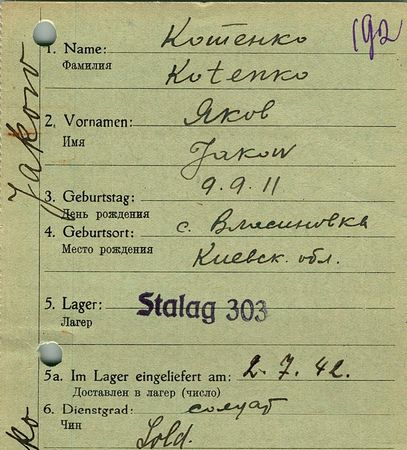 192
1. Name: Котенко
Фамилия Kotenko
2. Vornamen: Яков
Имя Jakow
3. Geburtstag: 9.9.11
День рождения
4. Geburtsort: с. Власиновка
Место рождения Киевск. обл.
5. Lager: Stalag 303
Лагер
5a. Im Lager eingeliefert am: 2.7.42.
Доставлен в лагер (число)
6. Dienstgrad: солдат
Чин Sold.
Jakow
ko